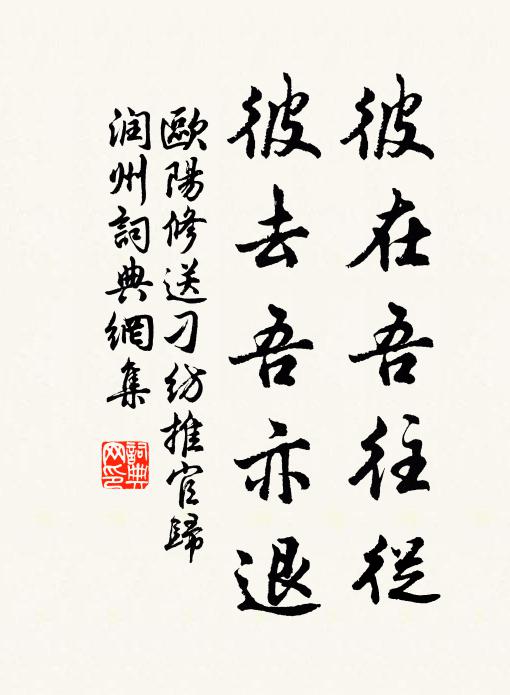 彼在吾往從
彼去吾亦退
歐陽修送刁紡推官歸
润州詞典網集
詞典網印